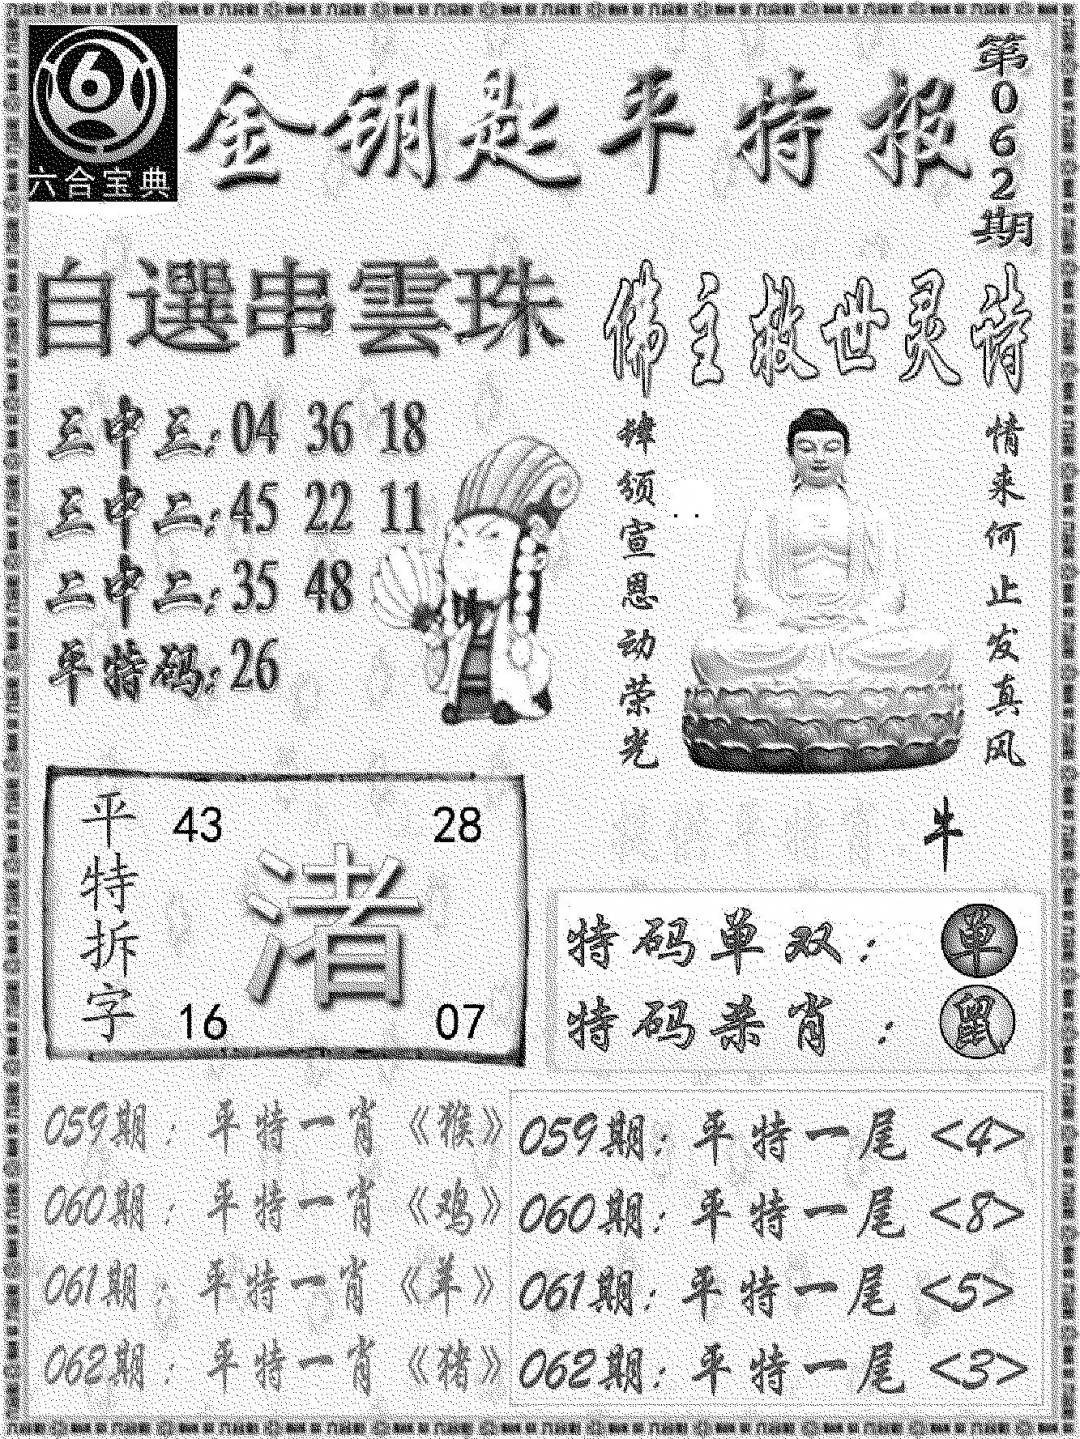 6
六合宝典
金钥匙平特报
第062期
自選串雲珠
三中三:04 36 18
三中二:45 22 11
二中二:35 48
单特码:26
佛主救世灵诗
情来何止发真风
肆颁宣恩动荣光
牛
平特拆字
43 28
渚
16 07
特码单双:单
特码杀肖:鼠
059期:平特一肖《猴》
060期:平特一肖《鸡》
061期:平特一肖《羊》
062期:平特一肖《猪》
059期:平特一尾<4>
060期:平特一尾<8>
061期:平特一尾<5>
062期:平特一尾<3>